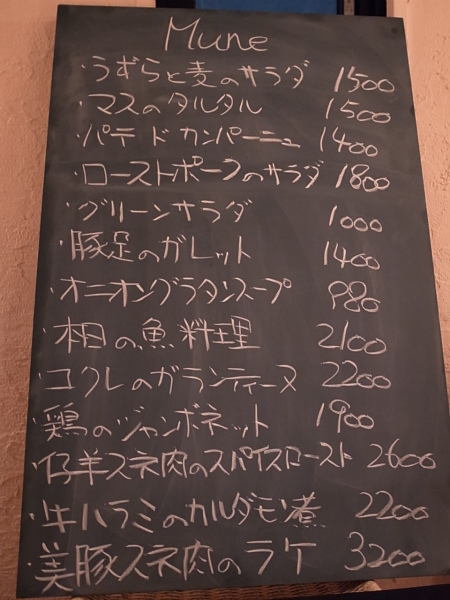 Mune
・うずらと麦のサラダ 1500
・マスのタルタル 1500
・パテ ド カンパーニュ 1400
・ローストポークのサラダ 1800
・グリーンサラダ 1000
・豚足のガレット 1400
・オニオングラタンスープ 980
・本日の魚料理 2100
・コクレのガランティーヌ 2200
・鶏のジャンボネット 1900
・仔羊スネ肉のスパイスロースト 2600
・牛ハラミのカルダモン煮 2200
・美豚スネ肉のラケ 3200